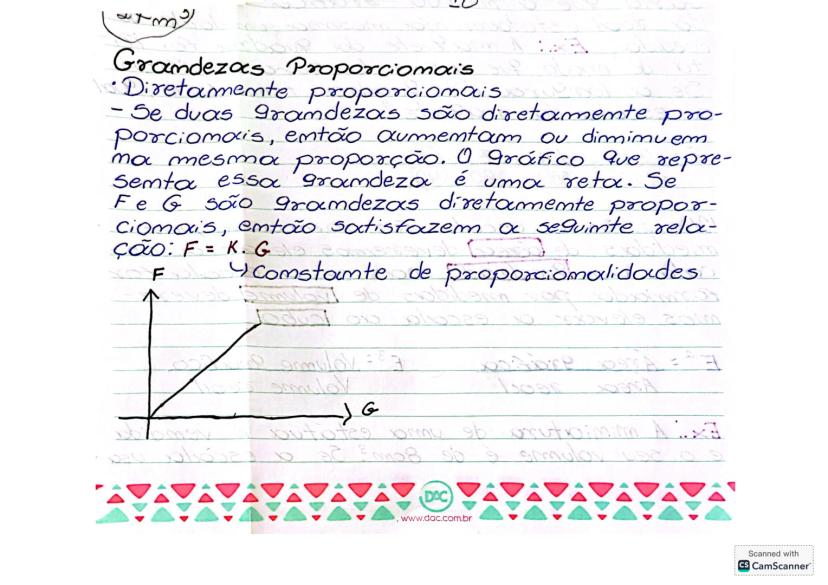 Grandezas Proporcionais
· Diretamente proporcionais
- Se duas grandezas são diretamente pro-
porcionais, então aumentam ou diminuem
na mesma proporção. O gráfico que repre-
senta essa grandeza é uma reta. Se
F e G são grandezas diretamente propor-
cionais, então satisfazem a seguinte rela-
ção: F = K. G
↳ Constante de proporcionalidades
F
G
DAC
www.dac.com.br
Scanned with
CS CamScanner